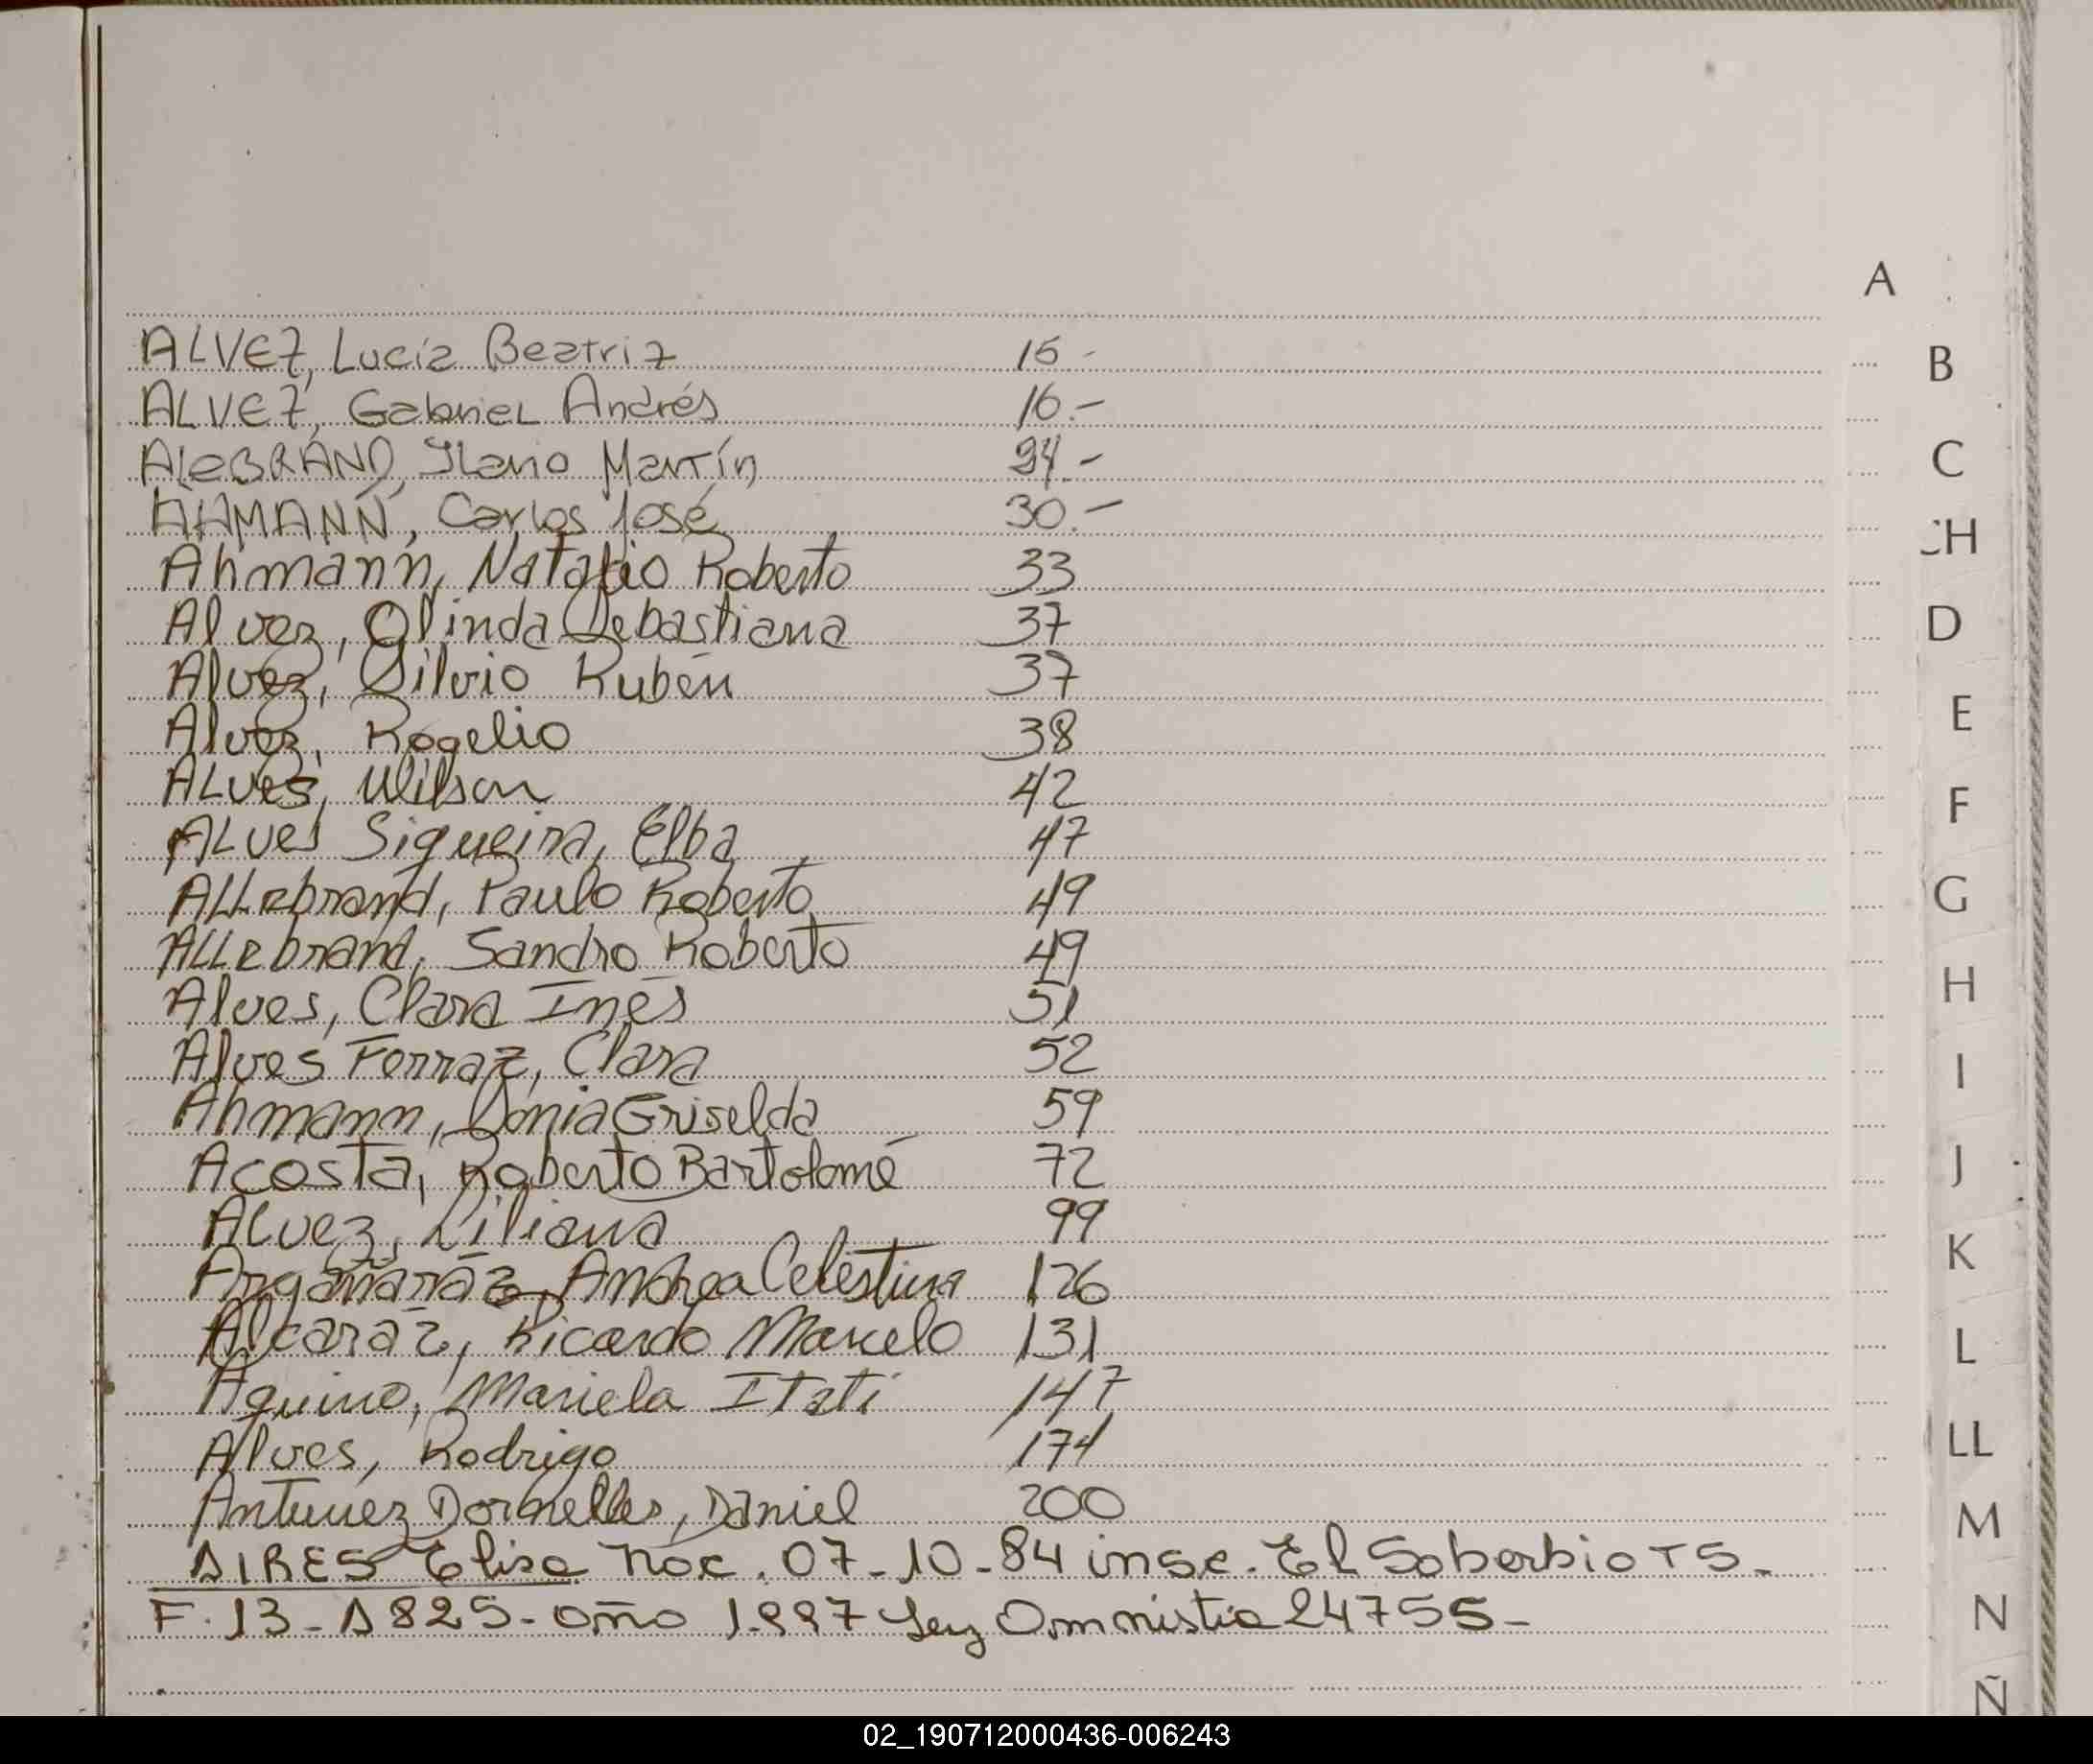 A
ALVEZ, Lucía Beatriz 15-
B
ALVEZ, Gabriel Andrés 16.-
C
AleBRAND, Ilario Martín 24.-
AHMANN, Carlos José 30.-
CH
Ahmann, Natalio Roberto 33
D
Alvez, Olinda Sebastiana 37
Alvez, Silvio Rubén 37
E
Alvez, Rogelio 38
ALves, Wilson 42
F
ALves Siqueira, Elba 47
G
ALLebrand, Paulo Roberto 49
ALLebrand, Sandro Roberto 49
H
Alves, Clara Inés 51
I
Alves Ferraz, Clara 52
Ahmann, Sonia Griselda 59
J
Acosta, Roberto Bartolomé 72
Alvez, Liliana 99
K
Argañaráz, Andrea Celestina 126
L
Alcaraz, Ricardo Marcelo 131
Aquino, Mariela Itatí 147
LL
Alves, Rodrigo 174
M
Antunez Dornelles, Daniel 200
AIRES Elisa nac. 07-10-84 insc. El Soberbio TS-
N
F.13-A825-año 1997 Ley Amnistia 24755-
Ñ
02_190712000436-006243